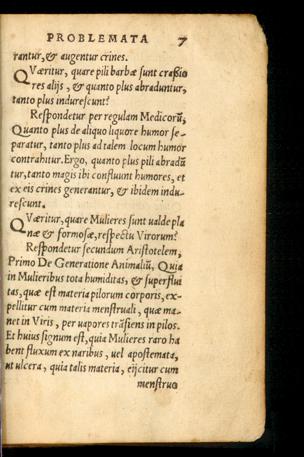 PROBLEMATA 7
rantur, & augentur crines.
QVæritur, quare pili barbæ sunt crassio
res alijs, & quanto plus abraduntur,
tanto plus indurescunt?
Respondetur per regulam Medicorũ,
Quanto plus de aliquo liquore humor se-
paratur, tanto plus ad talem locum humor
contrahitur. Ergo, quanto plus pili abradũ
tur, tanto magis ibi confluunt humores, et
ex eis crines generantur, & ibidem indu-
rescunt.
QVæritur, quare Mulieres sunt ualde pla
næ & formosæ, respectu Virorum?
Respondetur secundum Aristotelem,
Primo De Generatione Animaliũ, Quia
in Mulieribus tota humiditas, & superflui
tas, quæ est materia pilorum corporis, ex-
pellitur cum materia menstruali, quæ ma-
net in Viris, per uapores trãsiens in pilos.
Et huius signum est, quia Mulieres raro ha
bent fluxum ex naribus, uel apostemata,
ut ulcera, quia talis materia, eijcitur cum
menstruo